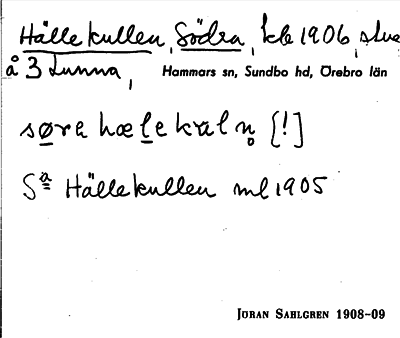 Hällekullen, Södra, kle 1906, stuga
å 3 Lunna, Hammars sn, Sundbo hd, Örebro län
sø̱ra hæḻekəln̥ [!]
Sª Hällekullen ml 1905
JÖRAN SAHLGREN 1908-09